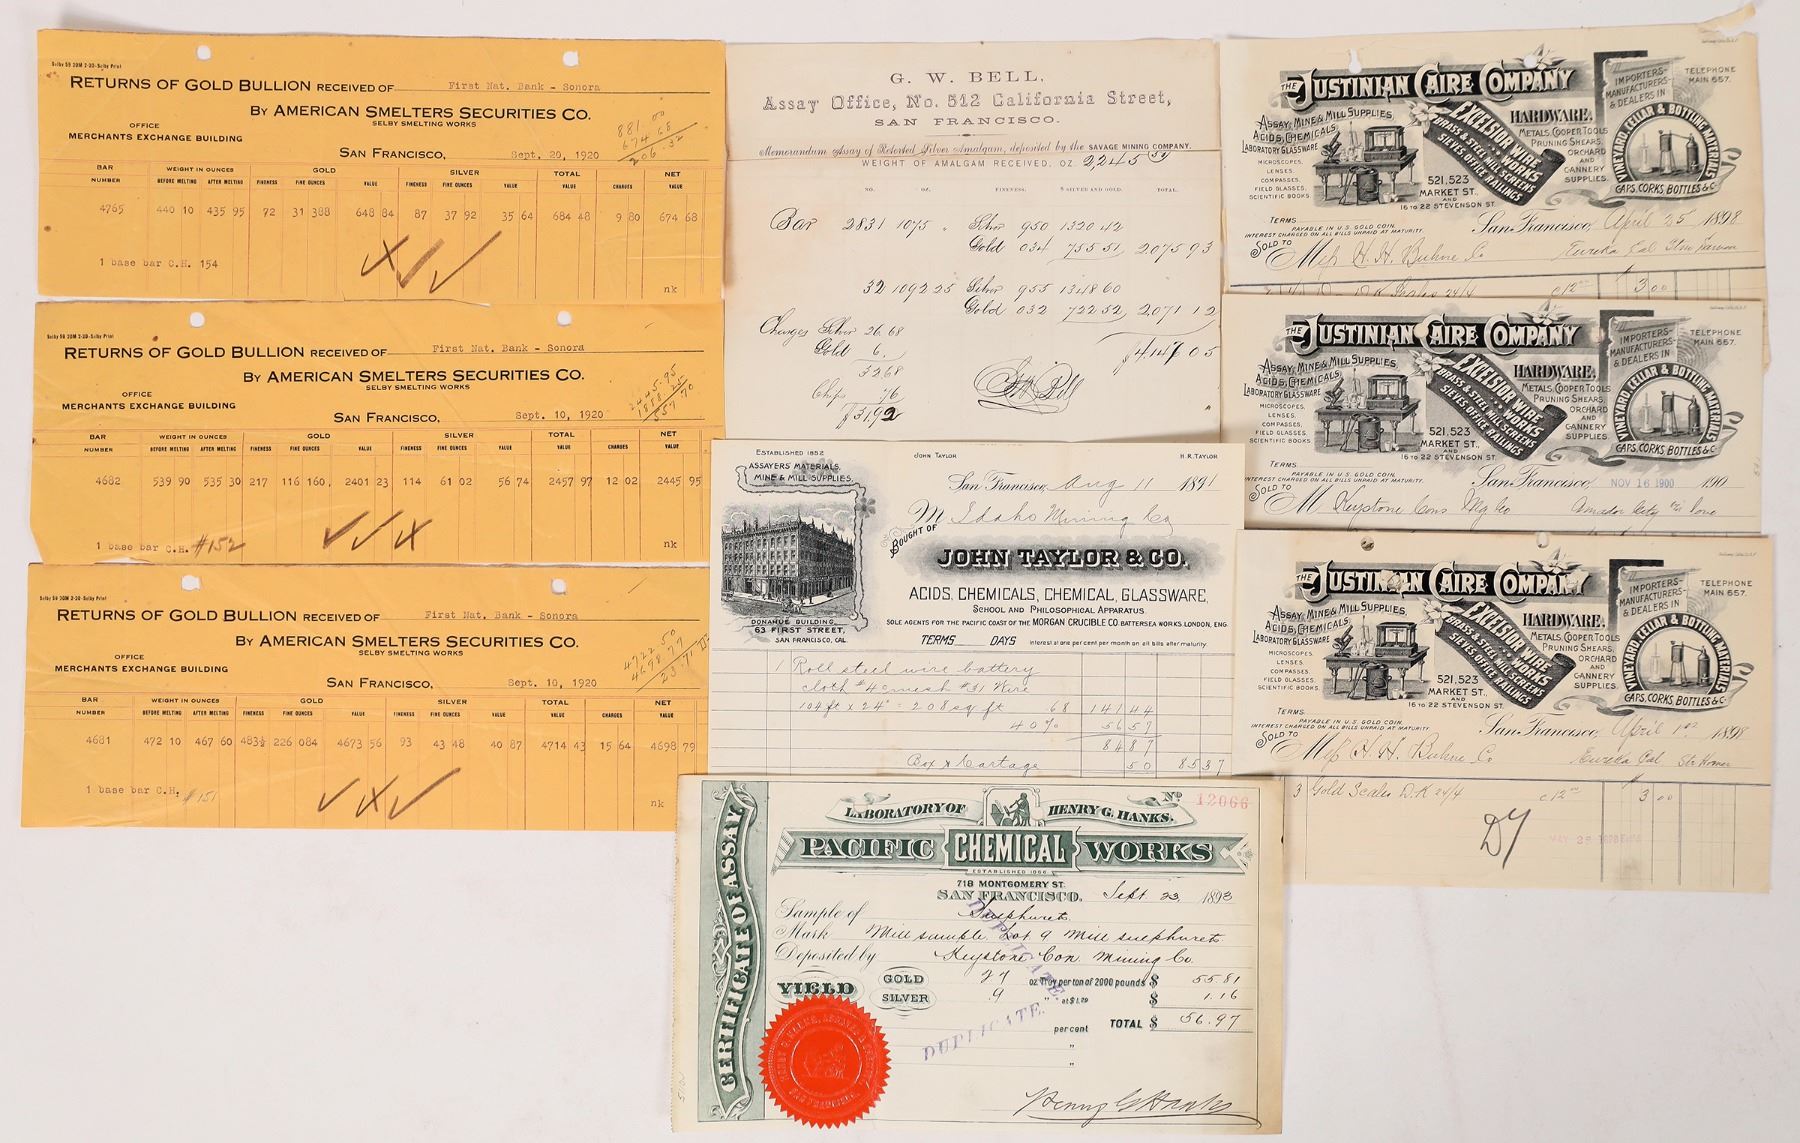 Selby 59 20M 2-20-Selby Print
RETURNS OF GOLD BULLION RECEIVED OF First Nat. Bank - Sonora
BY AMERICAN SMELTERS SECURITIES CO.
SELBY SMELTING WORKS
OFFICE
MERCHANTS EXCHANGE BUILDING
SAN FRANCISCO, Sept. 20, 1920
881.00
674 68
206.32
BAR NUMBER WEIGHT IN OUNCES GOLD SILVER TOTAL NET
BEFORE MELTING AFTER MELTING FINENESS FINE OUNCES VALUE FINENESS FINE OUNCES VALUE VALUE CHARGES VALUE
4765 440 10 435 95 72 31 388 648 84 87 37 92 35 64 684 48 9 80 674 68
1 base bar C.H. 154
nk
Selby 59 20M 2-20-Selby Print
RETURNS OF GOLD BULLION RECEIVED OF First Nat. Bank - Sonora
BY AMERICAN SMELTERS SECURITIES CO.
SELBY SMELTING WORKS
OFFICE
MERCHANTS EXCHANGE BUILDING
SAN FRANCISCO, Sept. 10, 1920
2445.95
1888 25
557 70
BAR NUMBER WEIGHT IN OUNCES GOLD SILVER TOTAL NET
BEFORE MELTING AFTER MELTING FINENESS FINE OUNCES VALUE FINENESS FINE OUNCES VALUE VALUE CHARGES VALUE
4682 539 90 535 30 217 116 160 2401 23 114 61 02 56 74 2457 97 12 02 2445 95
1 base bar C.H. #152
nk
Selby 59 20M 2-20-Selby Print
RETURNS OF GOLD BULLION RECEIVED OF First Nat. Bank - Sonora
BY AMERICAN SMELTERS SECURITIES CO.
SELBY SMELTING WORKS
OFFICE
MERCHANTS EXCHANGE BUILDING
SAN FRANCISCO, Sept. 10, 1920
4722 50
4698 79
23.71
BAR NUMBER WEIGHT IN OUNCES GOLD SILVER TOTAL NET
BEFORE MELTING AFTER MELTING FINENESS FINE OUNCES VALUE FINENESS FINE OUNCES VALUE VALUE CHARGES VALUE
4681 472 10 467 60 483½ 226 084 4673 56 93 43 48 40 87 4714 43 15 64 4698 79
1 base bar C.H. #151
nk
G. W. BELL,
Assay Office, No. 512 California Street,
SAN FRANCISCO.
Memorandum Assay of Retorted Silver Amalgam, deposited by the SAVAGE MINING COMPANY.
WEIGHT OF AMALGAM RECEIVED, OZ. 2,245
NO. OZ. FINENESS. $ SILVER AND GOLD. TOTAL.
Bar 2831 1075 " Silver 950 1320 42
Gold 034 755 51 2,075 93
32 1092 25 Silver 955 1348 60
Gold 032 722 52 2,071 12
Charges Silver 26.68 $4147 05
Gold 6.
32 68
Chips 76
$31,92
GW Bell
ESTABLISHED 1852
JOHN TAYLOR H.R. TAYLOR
ASSAYERS MATERIALS,
MINE & MILL SUPPLIES,
San Francisco, Aug 11 1891
M Idaho Mining Co
BOUGHT OF
JOHN TAYLOR & CO.
ACIDS, CHEMICALS, CHEMICAL, GLASSWARE,
SCHOOL AND PHILOSOPHICAL APPARATUS.
SOLE AGENTS FOR THE PACIFIC COAST OF THE MORGAN CRUCIBLE CO. BATTERSEA WORKS, LONDON, ENG.
DONAHUE BUILDING,
63 FIRST STREET,
SAN FRANCISCO, CAL.
TERMS DAYS Interest at one per cent per month on all bills after maturity.
1 Roll steel wire battery
cloth #40 mesh #31 Wire
104 ft x 24" = 208 sq ft .68 141 44
40% 56 57
84 87
Box & Cartage 50 85 37
CERTIFICATE OF ASSAY
LABORATORY OF HENRY G. HANKS.
No 12066
PACIFIC CHEMICAL WORKS
ESTABLISHED 1866
718 MONTGOMERY ST.
SAN FRANCISCO. Sept. 23, 1893
Sample of Sulphurets
Mark Mill sample. Lot 9 Mill sulphurets
Deposited by Keystone Con. Mining Co.
YIELD GOLD 27 oz. Troy per ton of 2000 pounds $ 55.81
SILVER .9 " at $1.29 $ 1.16
per cent TOTAL $ 56.97
"
"
DUPLICATE.
DUPLICATE.
Henry G Hanks
THE JUSTINIAN CAIRE COMPANY
ASSAY, MINE & MILL SUPPLIES,
ACIDS, CHEMICALS,
LABORATORY GLASSWARE
MICROSCOPES,
LENSES,
COMPASSES,
FIELD GLASSES,
SCIENTIFIC BOOKS.
EXCELSIOR WIRE WORKS
BRASS & STEEL MILL SCREENS
SIEVES, OFFICE RAILINGS
521, 523
MARKET ST.,
AND
16 TO 22 STEVENSON ST.
HARDWARE,
METALS, COOPER TOOLS
PRUNING SHEARS,
ORCHARD
AND
CANNERY
SUPPLIES.
IMPORTERS-
MANUFACTURERS-
& DEALERS IN
VINEYARD, CELLAR & BOTTLING MATERIALS
CAPS, CORKS, BOTTLES &C.
TELEPHONE
MAIN 657.
TERMS
PAYABLE IN U.S. GOLD COIN.
INTEREST CHARGED ON ALL BILLS UNPAID AT MATURITY.
San Francisco, April 25 1898
SOLD TO Mess H. H. Buhne Co Eureka Cal
c 12 00 3 00
THE JUSTINIAN CAIRE COMPANY
ASSAY, MINE & MILL SUPPLIES,
ACIDS, CHEMICALS,
LABORATORY GLASSWARE
MICROSCOPES,
LENSES,
COMPASSES,
FIELD GLASSES,
SCIENTIFIC BOOKS.
EXCELSIOR WIRE WORKS
BRASS & STEEL MILL SCREENS
SIEVES, OFFICE RAILINGS
521, 523
MARKET ST.,
AND
16 TO 22 STEVENSON ST.
HARDWARE,
METALS, COOPER TOOLS
PRUNING SHEARS,
ORCHARD
AND
CANNERY
SUPPLIES.
IMPORTERS-
MANUFACTURERS-
& DEALERS IN
VINEYARD, CELLAR & BOTTLING MATERIALS
CAPS, CORKS, BOTTLES &C.
TELEPHONE
MAIN 657.
TERMS
PAYABLE IN U.S. GOLD COIN.
INTEREST CHARGED ON ALL BILLS UNPAID AT MATURITY.
San Francisco, NOV 16 1900 190
SOLD TO M Keystone Cons Mg Co Amador City via Ione
THE JUSTINIAN CAIRE COMPANY
ASSAY, MINE & MILL SUPPLIES,
ACIDS, CHEMICALS,
LABORATORY GLASSWARE
MICROSCOPES,
LENSES,
COMPASSES,
FIELD GLASSES,
SCIENTIFIC BOOKS.
EXCELSIOR WIRE WORKS
BRASS & STEEL MILL SCREENS
SIEVES, OFFICE RAILINGS
521, 523
MARKET ST.,
AND
16 TO 22 STEVENSON ST.
HARDWARE,
METALS, COOPER TOOLS
PRUNING SHEARS,
ORCHARD
AND
CANNERY
SUPPLIES.
IMPORTERS-
MANUFACTURERS-
& DEALERS IN
VINEYARD, CELLAR & BOTTLING MATERIALS
CAPS, CORKS, BOTTLES &C.
TELEPHONE
MAIN 657.
TERMS
PAYABLE IN U.S. GOLD COIN.
INTEREST CHARGED ON ALL BILLS UNPAID AT MATURITY.
San Francisco, April 1st 1898
SOLD TO Mess H. H. Buhne Co Eureka Cal
3 Gold Scales D.K 24/4 c 12 00 3 00